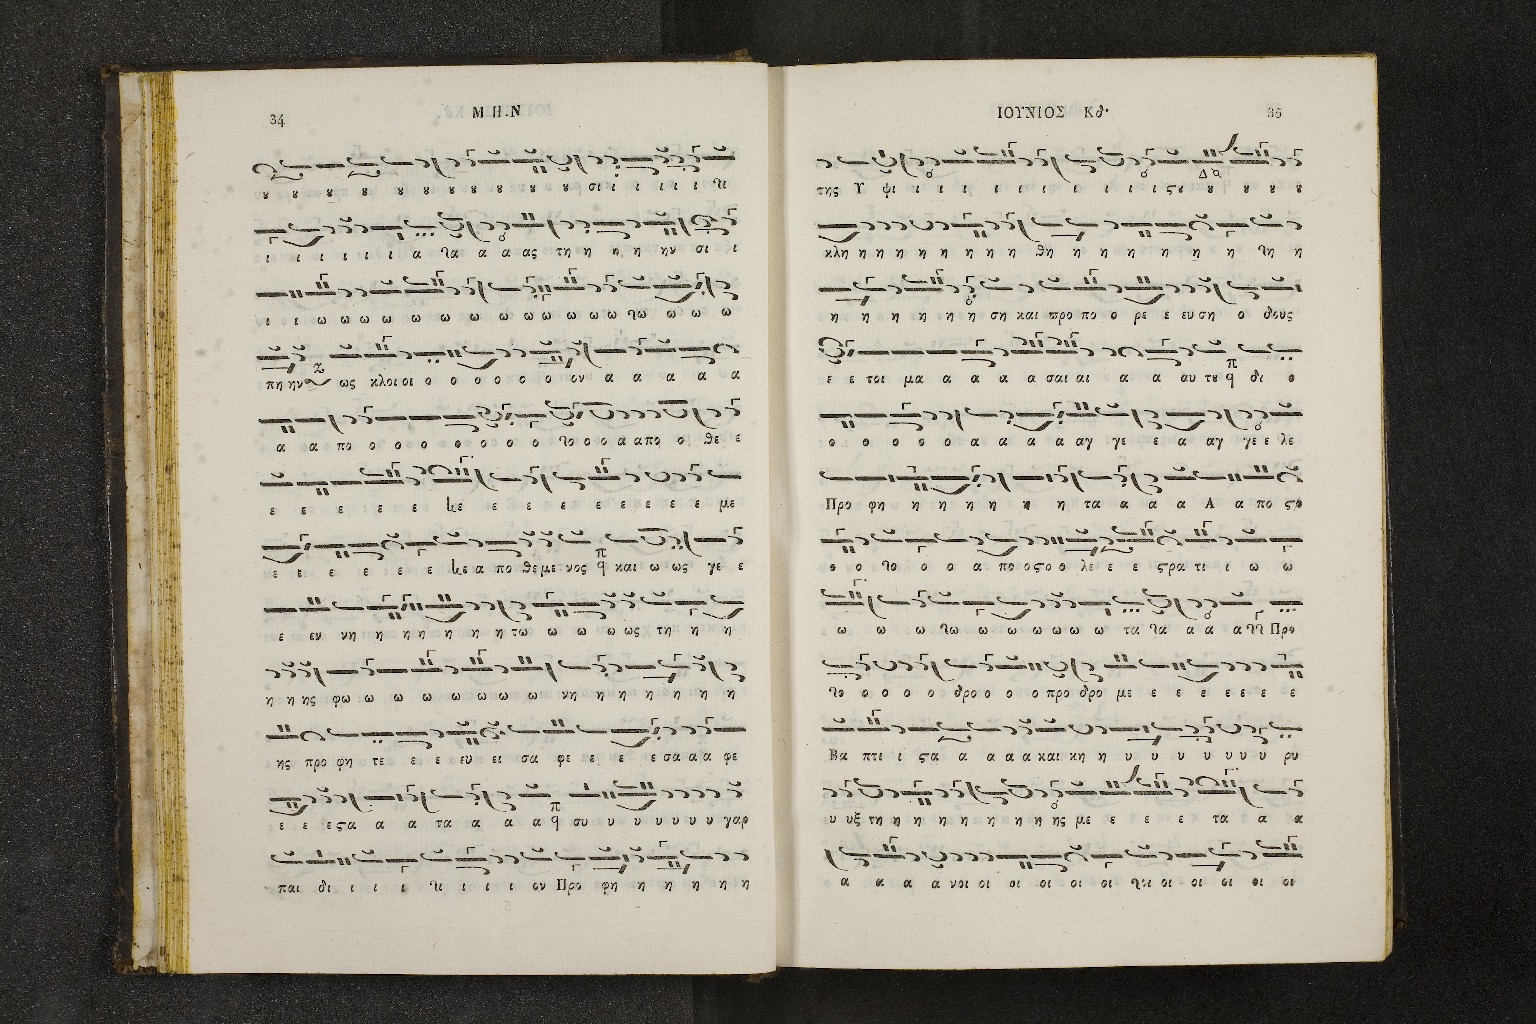 34
ΜΗΝ
ȣ ȣ ȣ ȣ ȣ ȣ ȣ ȣ ȣ ȣ ȣ ȣ ȣ σι ι ι ι ι ι τι
ι ι ι ι ι ι α τα α α ας τη η η η ην σι ι
ι ι ω ω ω ω ω ω ω ω ω ω ω ω ω τω ω ω ω
πη ην ως κλοι οι ο ο ο ο ο ο ον α α α α α
α α πο ο ο ο ο ο ο ο ο το ο ο α απο ο θε ε
ε ε ε ε ε ε ε ε ε ε ε ε ε με
ε ε ε ε ε ε ε α πο θε με νος π q και ω ως γε ε
ε εν νη η η η η η η τω ω ω ω ως τη η η
η η ης φω ω ω ω ω ω ω ω νη η η η η η η
ης προ φη τε ε ε ευ ει σα φε ε ε ε σα α α φε
ε ε ε ςα α α τα α α α π q συ υ υ υ υ υ υ γαρ
παι δι ι ι ι τι ι ι ι ον Προ φη η η η η η
ΙΟΥΝΙΟΣ Κδ·
35
της Υ ψι ι ι ι ι ι ι ι ι ι ι ςȣ ȣ ȣ ȣ ȣ
κλη η η η η η η η η η θη η η η η η η τη η
η η η η η η ση και προ πο ο ρε ε ευ ση ο δους
ε ε τοι μα α α α α σαι αι α α αυ τȣ π q δι ο
ο ο ο ο ο ο α α α α αγ γε ε α αγ γε ε λε
Προ φη η η η η η η τα α α α Α α πο ςο
ο ο το ο ο α πο ο ςο ο λε ε ε ςρα τι ι ω ω
ω ω ω τω ω ω ω ω ω ω τα τα α α α α Προ
το ο ο ο ο δρο ο ο ο προ δρο με ε ε ε ε ε ε ε
Βα πτι ι ςα α α α α και κη η υ υ υ υ υ υ υ ρυ
υ υξ τη η η η η η η η η ης με ε ε ε ε τα α α
α α α α νοι οι οι οι οι οι τοι οι οι οι οι οι